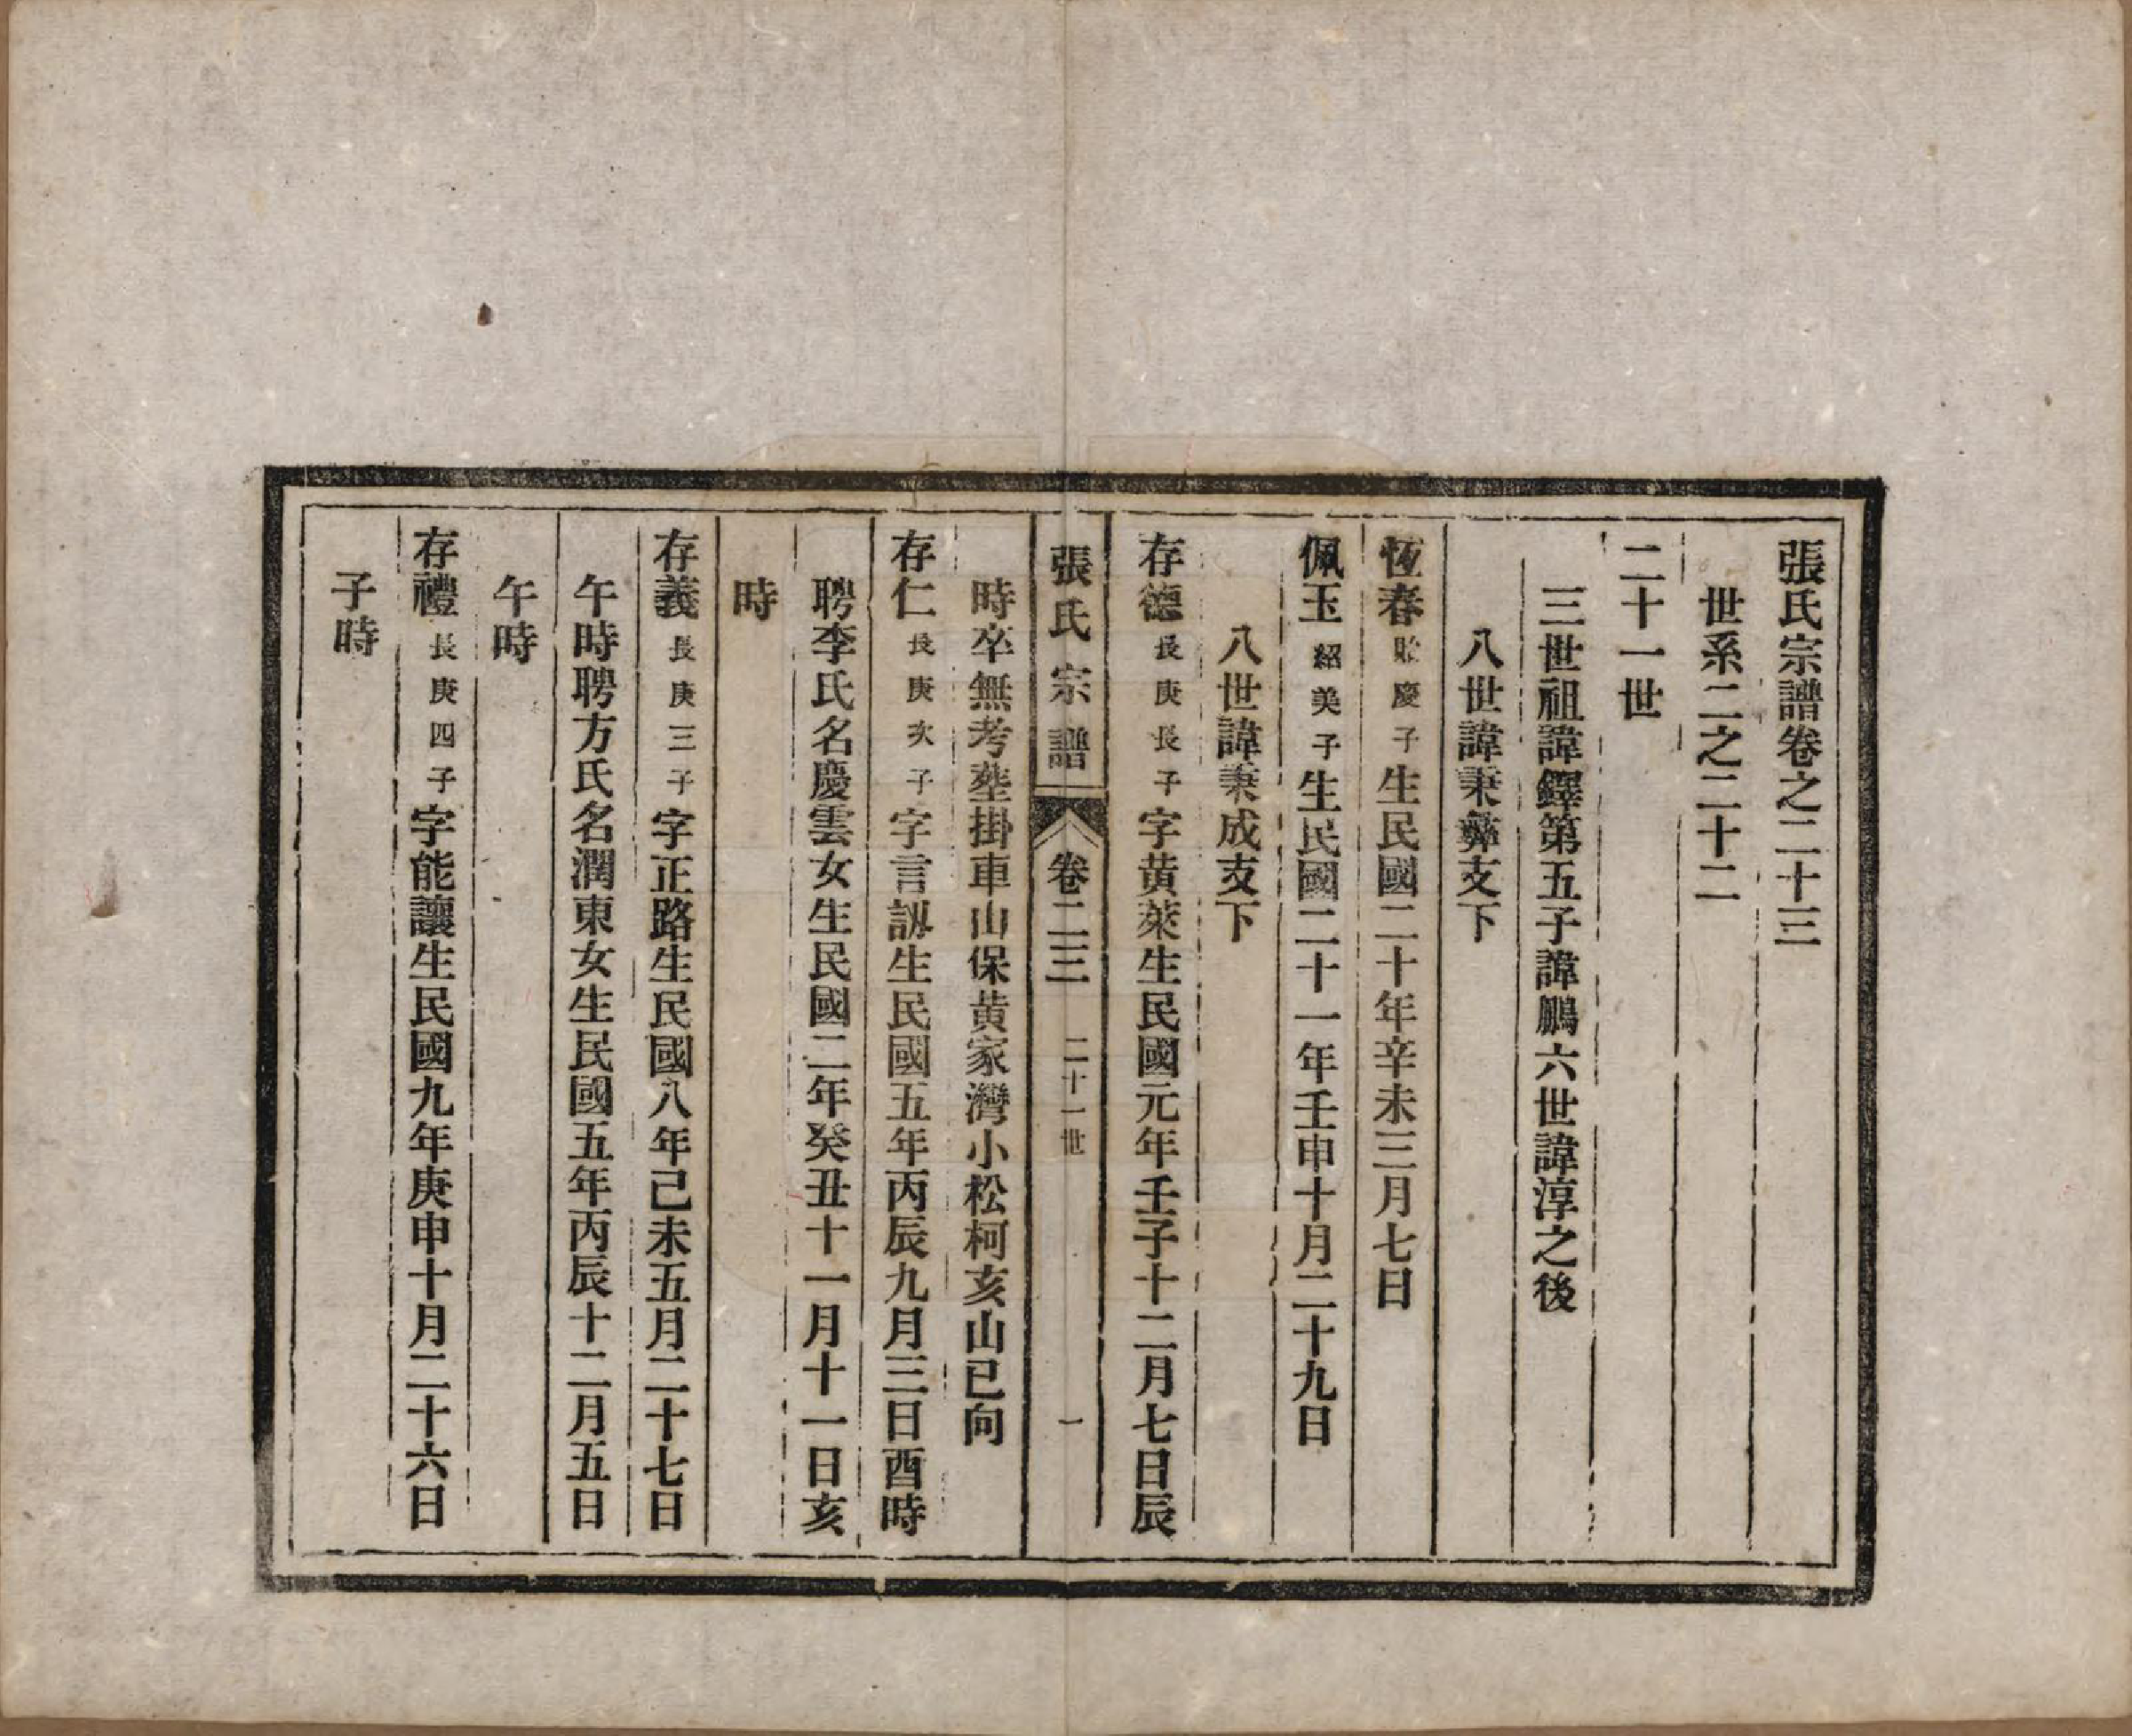 張氏宗譜卷之二十三
世系二之二十二
二十一世
三世祖諱鐸第五子諱鵬六世諱淳之後
八世諱秉彝支下
恆春貽慶子生民國二十年辛未三月七日
佩玉紹美子生民國二十一年壬申十月二十九日
八世諱秉成支下
存德長庚長子字黃萊生民國元年壬子十二月七日辰
時卒無考塟掛車山保黃家灣小松柯亥山巳向
張氏宗譜 卷二三 二十一世 一
存仁長庚次子字言訒生民國五年丙辰九月三日酉時
聘李氏名慶雲女生民國二年癸丑十一月十一日亥
時
存義長庚三子字正路生民國八年己未五月二十七日
午時聘方氏名潤東女生民國五年丙辰十二月五日
午時
存禮長庚四子字能讓生民國九年庚申十月二十六日
子時